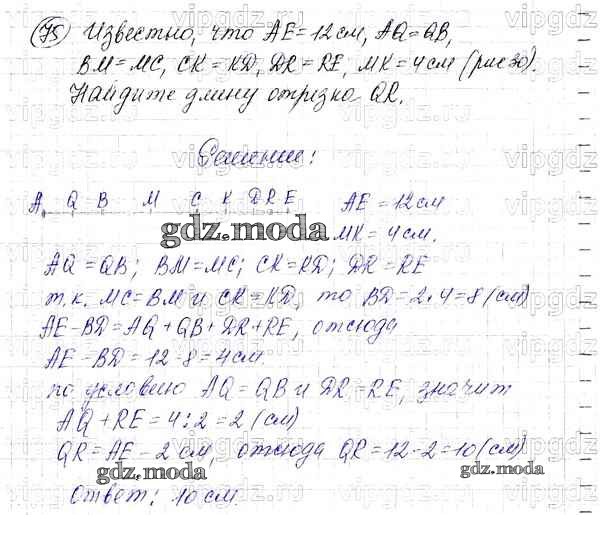 75 Известно, что AE=12см, AQ=QB,
BM=MC, CK=KD, DR=RE, MK=4см (рис 30).
Найдите длину отрезка QR.
Решение:
A Q B M C K D R E AE=12см
gdz.moda
MK=4см.
AQ=QB; BM=MC; CK=KD; DR=RE
т.к. MC=BM и CK=KD, то BD=2·4=8(см)
AE-BD=AQ+QB+DR+RE, отсюда
AE-BD=12-8=4см
по условию AQ=QB и DR=RE, значит
AQ+RE=4:2=2(см)
QR=AE-2см, отсюда QR=12-2=10(см)
gdz.moda gdz.moda
Ответ: 10см.